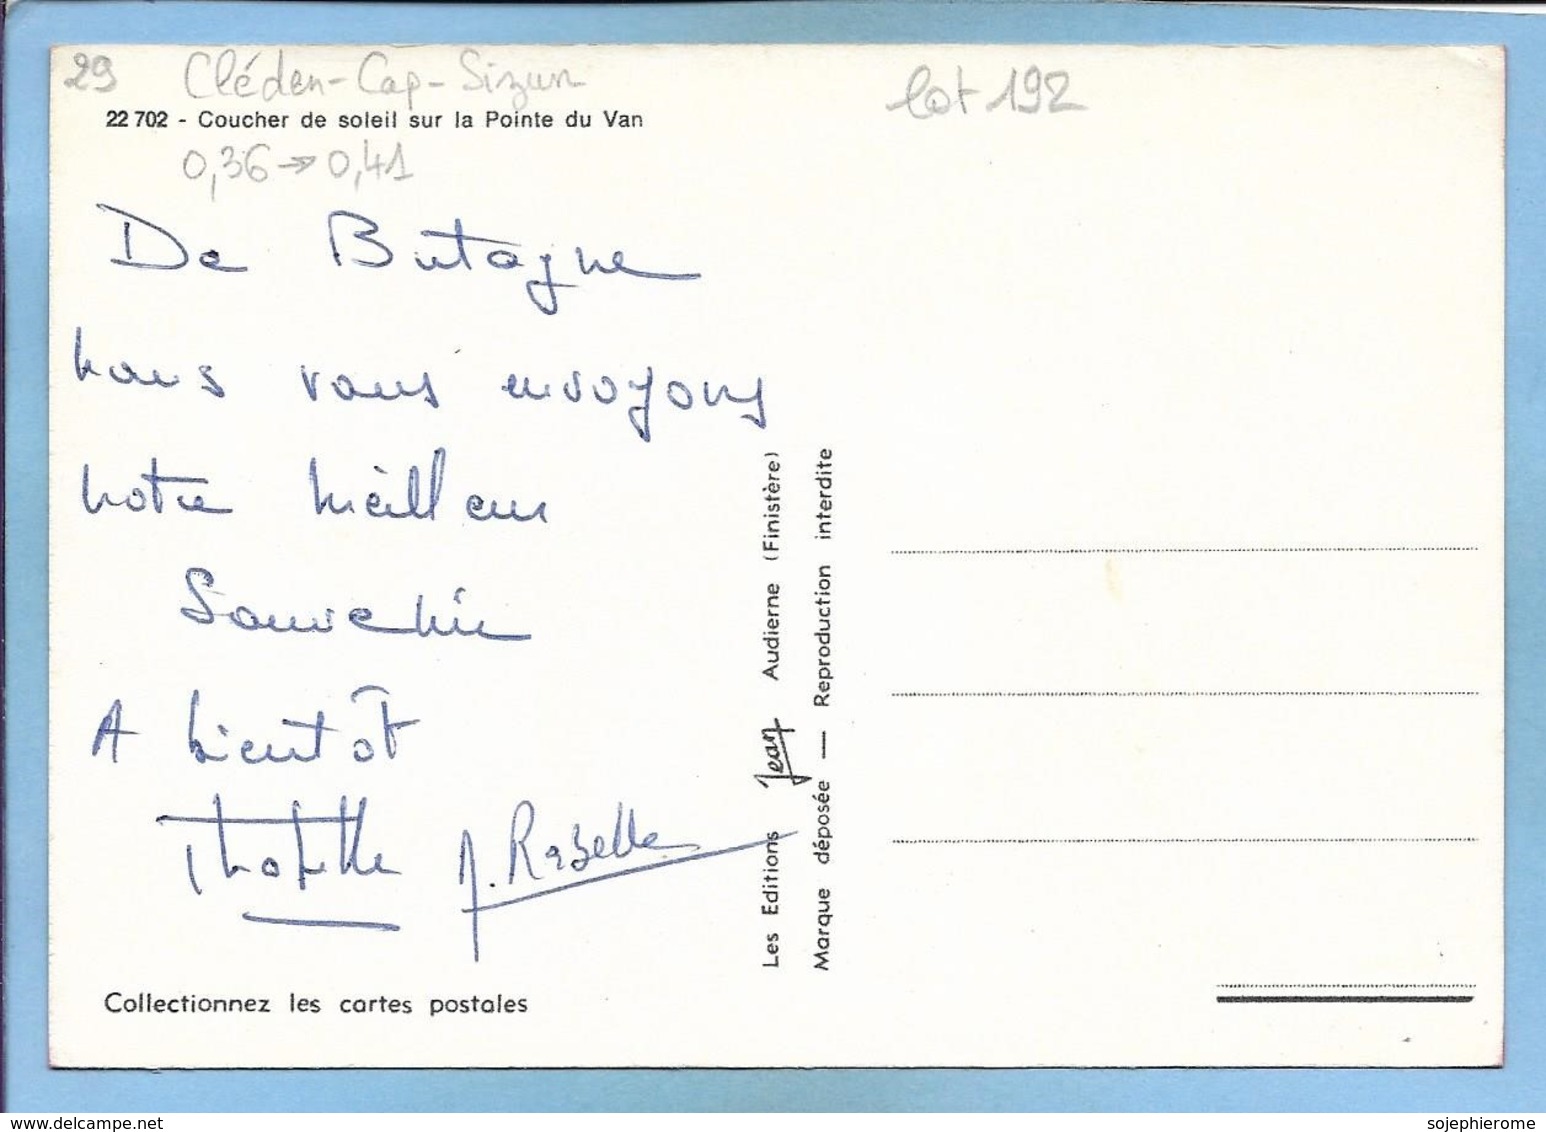 29 Cléden-Cap-Sizun
lot 192
22 702 - Coucher de soleil sur la Pointe du Van
0,36 → 0,41
De Bretagne
nous vous envoyons
notre meilleur
Souvenir
A bientôt
Les Editions Jean Audierne (Finistère)
Marque déposée — Reproduction interdite
Collectionnez les cartes postales
www.delcampe.net
sojephierome